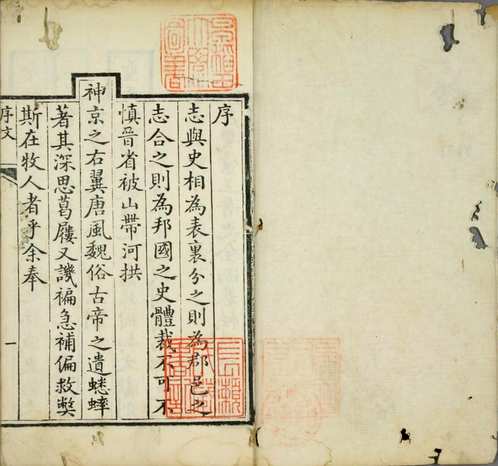 序
志與史相為表裏分之則為郡邑之
志合之則為邦國之史體裁不可不
慎晉省被山帶河拱
神京之右翼唐風魏俗古帝之遺蟋蟀
著其深思葛屨又譏褊急補偏救獘
斯在牧人者乎余奉
序文
一